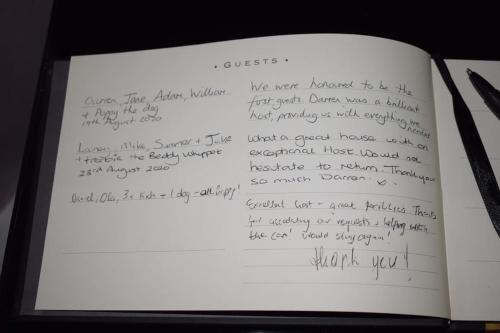 • GUESTS •
Darren, Jane, Adam, William
+ Poppy the dog
19th August 2020
We were honoured to be the
first guests. Darren was a brilliant
host, providing us with everything we
needed
Lainey, Mike, Summer + Jake
+ Freebie the Beddy Whippet
23rd August 2020
What a great house with an
exceptional Host. Would not
hesitate to return. Thank you
so much Darren. x
Ola, 3x Kids + 1 dog - all happy!
Excellent host - great facilities. Thanks
for our requests + helping with
the car! Would stay again!
thank you!